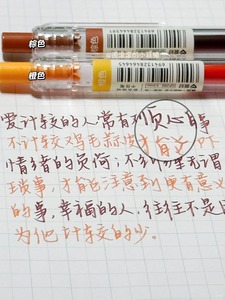 棕色
橙色
爱计较的人常有烦心事
不计较鸡毛蒜皮才能
情绪的负荷；不纠缠无谓
琐事，才能注意到更有意义
的事，幸福的人，往往不是因
为他计较的少。